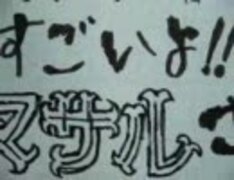 すごいよ!!
マサルさ